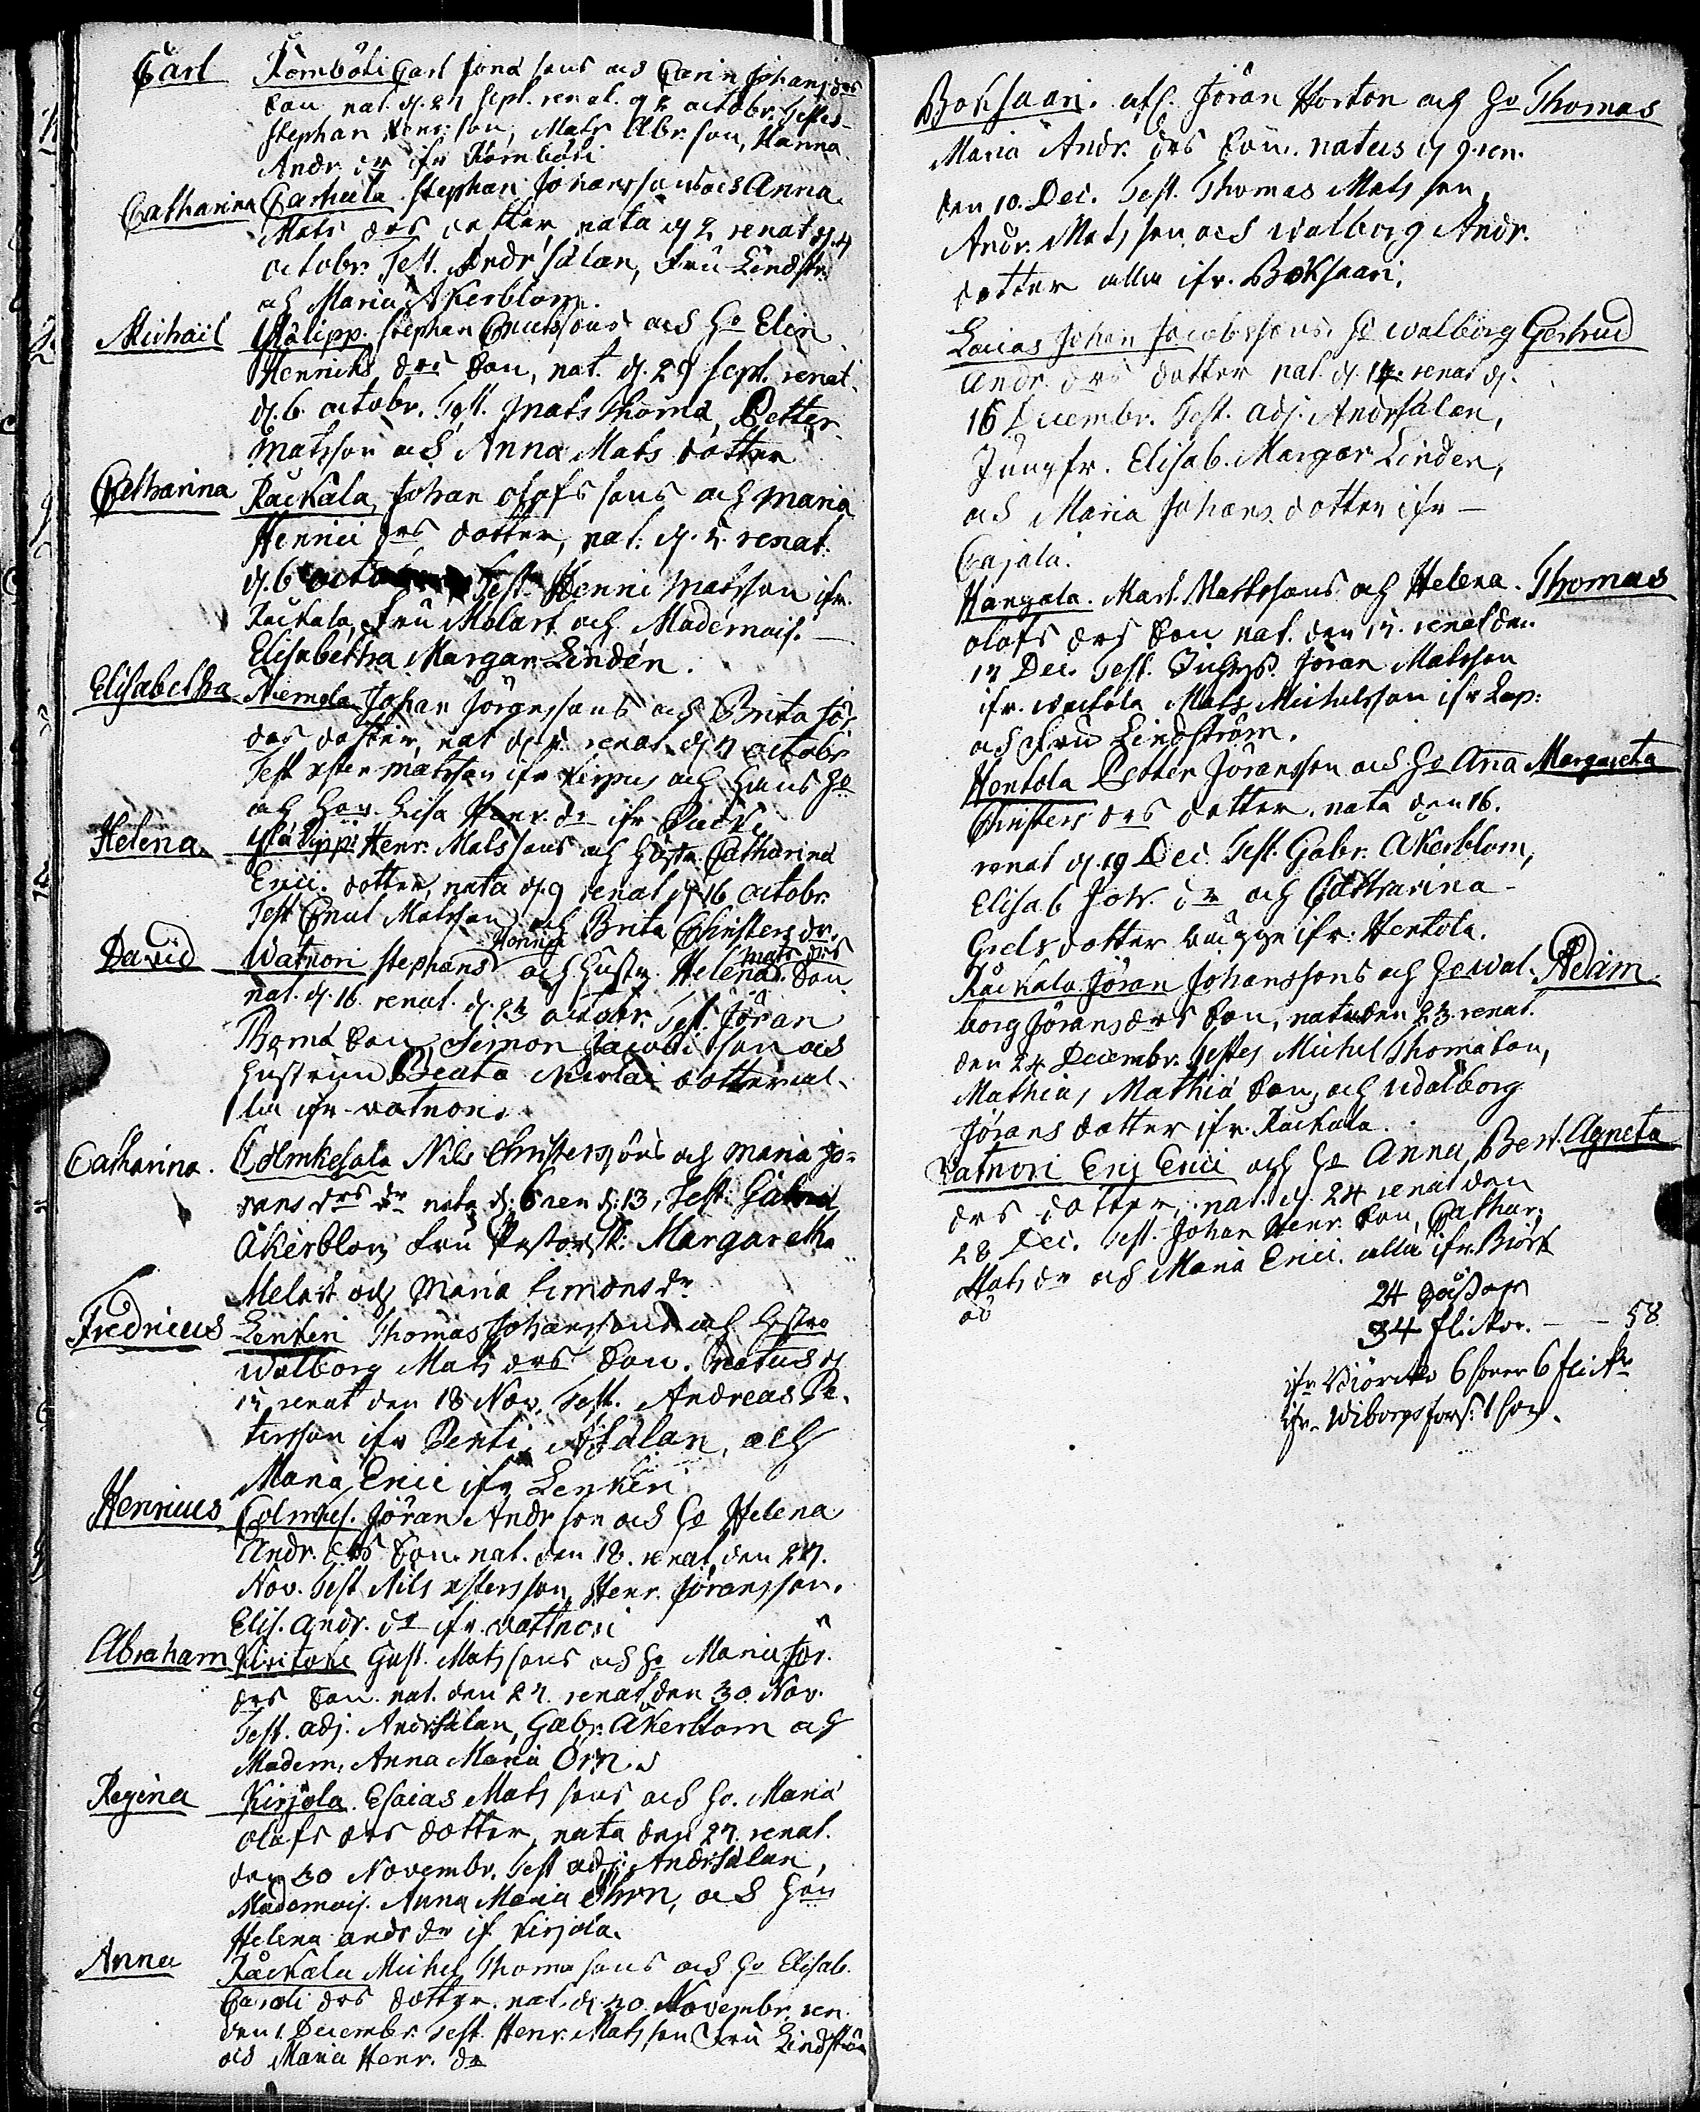 Carl Kämböli Carl Jonæ sons och Carin Johans drs
Son nat. d. 27 Sept. renat. d 2 octobr. Testes
Stephan Henr. son, Mats Abr. son, Hanna
Andr. dr ifr Kämböli
Catharina Carhula Stephan Johanssons och Anna
Mats drs dotter nata d 2 renat d. 4
octobr. Test. Andr Salan, Fru Lindstr.
och Maria Åkerblom.
Michaël Yskälipp. Stephan Cnutssons och ho Elin
Henriks drs Son, nat. d. 29 Sept. renat.
d. 6 octobr. Test. Mats Thomæ, Petter
Matsson och Anna Mats dotter
Catharina Räckala Johan Olofs sons och Maria
Henrici drs dotter, nat. d. 5 renat.
d. 6 Test. Henric Matsson ifr.
Räckala, Fru Molart och Mademois.
Elisabetha Margar Lindén.
Elisabetha Niemela Johan Jöranssons och Brita Jör.
drs dotter, nat d. renat. d 7 octobr
Test Matsson ifr Kirpus och hans ho
och Lisa Henr. dr ifr
Helena Yskälippi Henr. Mats sons och hustr. Catharina
Erici dotter, nata d. 9 renat d 16 octobr.
Test Cnut Matsson och Brita Christers dr.
David Watnori Stephans och hustr. Helena Mats drs Son
nat. d. 16. renat. d. 23 octobr. Test. Jöran
Thomæ Son, Simon Jacobi son och
hustrun Beata Nicolai dotter al-
la ifr. Watnori.
Catharina. Colmkesala Nils Christerssons och Maria Jö-
rans drs dr nata d. 6 ren d. 13, Test. Gabriel
Åkerblom Fru Pastorsk. Margaretha
Melart och Maria Simons dr
Fredricus Lenkeri Thomas Johanssons och hustru
Walborg Mats drs Son. Natus d
15 renat den 18 Nov. Test. Andreas Pe-
tersson ifr Penti, A Salan, och
Maria Erici ifr Lenkeri
Henricus Colmkes. Jöran Andr son och ho Helena
Andr. drs Son. nat. den 18. renat den 27.
Nov. Test Nils Estersson, Henr. Jöransson,
Elis. Andr. dr ifr. Vattnori
Abraham Kiritoki Gust. Mats sons och ho Maria Jör.
drs Son. nat. den 27. renat den 30 Nov.
Test. adj. Andr Salan, Gabr. Åkerblom och
Madem. Anna Maria Örn.
Regina Kirjola. Esaias Mats sons och ho. Maria
Olofs drs dotter, nata den 27. renat.
den 30 Novembr. Test adj. Andr. Salan,
Mademois. Anna Maria Öhrn, och
Helena Andr dr if Kirjola.
Anna Räckala Michel Thomæ sons och ho Elisab.
Caroli drs dotter. nat. d. 30 Novembr. ren.
den 1. Decembr. Test. Henr. Mats son Fru Lindström
och Maria Henr. dr
Boksaari. afl. Jöran Horton och ho Thomas
Maria Andr. drs Son. natus d 9. ren.
den 10. Dec. Test. Thomas Mats son,
Andr. Mats son och Walborg Andr.
dotter alla ifr. Boksaari.
Laias Johan Jacobssons ho Walborg Gertrud
Andr. drs dotter nat. d. 14. renat d.
16 Decembr. Test. adj. Andr Salan,
Jungfr. Elisab. Margar Linden,
och Maria Johans dotter ifr
Cajala.
Kangala. Mart. Matssons och Helena Thomas
Olofs drs Son nat. den 15. renat den
17 Dec. Test. Jöran Matsson
ifr. Mats Michelsson ifr Lap:
och Fru Lindström.
Hentola Petter Jöransson och ho Anna Margareta
Christers drs dotter. nata den 16.
renat d. 19 Dec. Test. Gabr. Åkerblom,
Elisab. Joh. dr och Catharina
Grels dotter ifr. Hentola.
Räckala Jöran Johanssons och ho Wal- Adam
borg Jörans drs Son, natus den 23 renat.
den 24 Decembr. Testes Michel Thomæ Son,
Mathias Mathiæ Son, och Walborg
Jörans dotter ifr. Räckala.
Vatnori Eric Erici och ho Anna Bert. Agneta
drs dotter. nat. d. 24 renat den
28 Dec. Test. Johan Henr. Son, Cathar.
Mats dr och Maria Erici. alla ifr. Biörk
oö
24 gåssar
34 flickor. — 58
ifr. Biörckö 6 soner 6 flick
ifr. Wiborgs fors. 1 son.